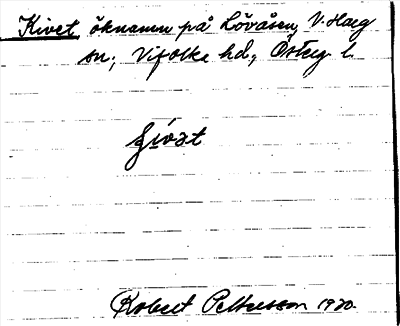 Kivet, öknamn på Lövåsen, V. Harg
sn; Vifolka hd, Österg l.
Robert Pettersson 1920.